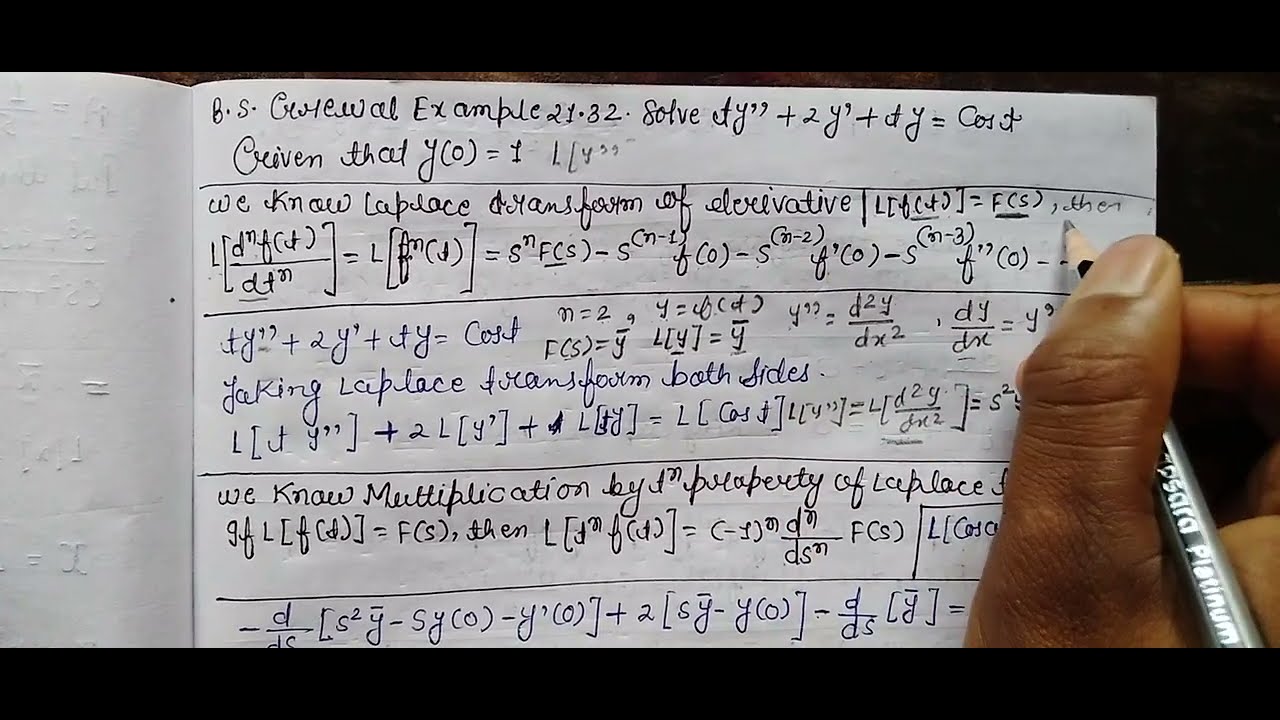 B.S. Grewal Example 21.32. Solve ty'' + 2y' + ty = Cost
Given that y(0) = 1 L[y''
We know Laplace transform of derivative | L[f(t)] = F(S), then
L[dⁿf(t)/dtⁿ] = L[fⁿ(t)] = SⁿF(S) - S⁽ⁿ⁻¹⁾f(0) - S⁽ⁿ⁻²⁾f'(0) - S⁽ⁿ⁻³⁾f''(0) - -
ty'' + 2y' + ty = Cost n = 2, y = f(t) y'' = d²y/dx², dy/dx = y'
F(S) = ȳ L[y] = ȳ
Taking Laplace transform both sides.
L[t y''] + 2L[y'] + L[ty] = L[Cost] L[y''] = L[d²y/dx²] = S²
We know Multiplication by tⁿ property of Laplace
If L[f(t)] = F(S), then L[tⁿ f(t)] = (-1)ⁿ dⁿ/dsⁿ F(S) | L[Cosa
- d/ds [S²ȳ - Sy(0) - y'(0)] + 2[Sȳ - y(0)] - d/ds [ȳ] =
Apsara Platinum